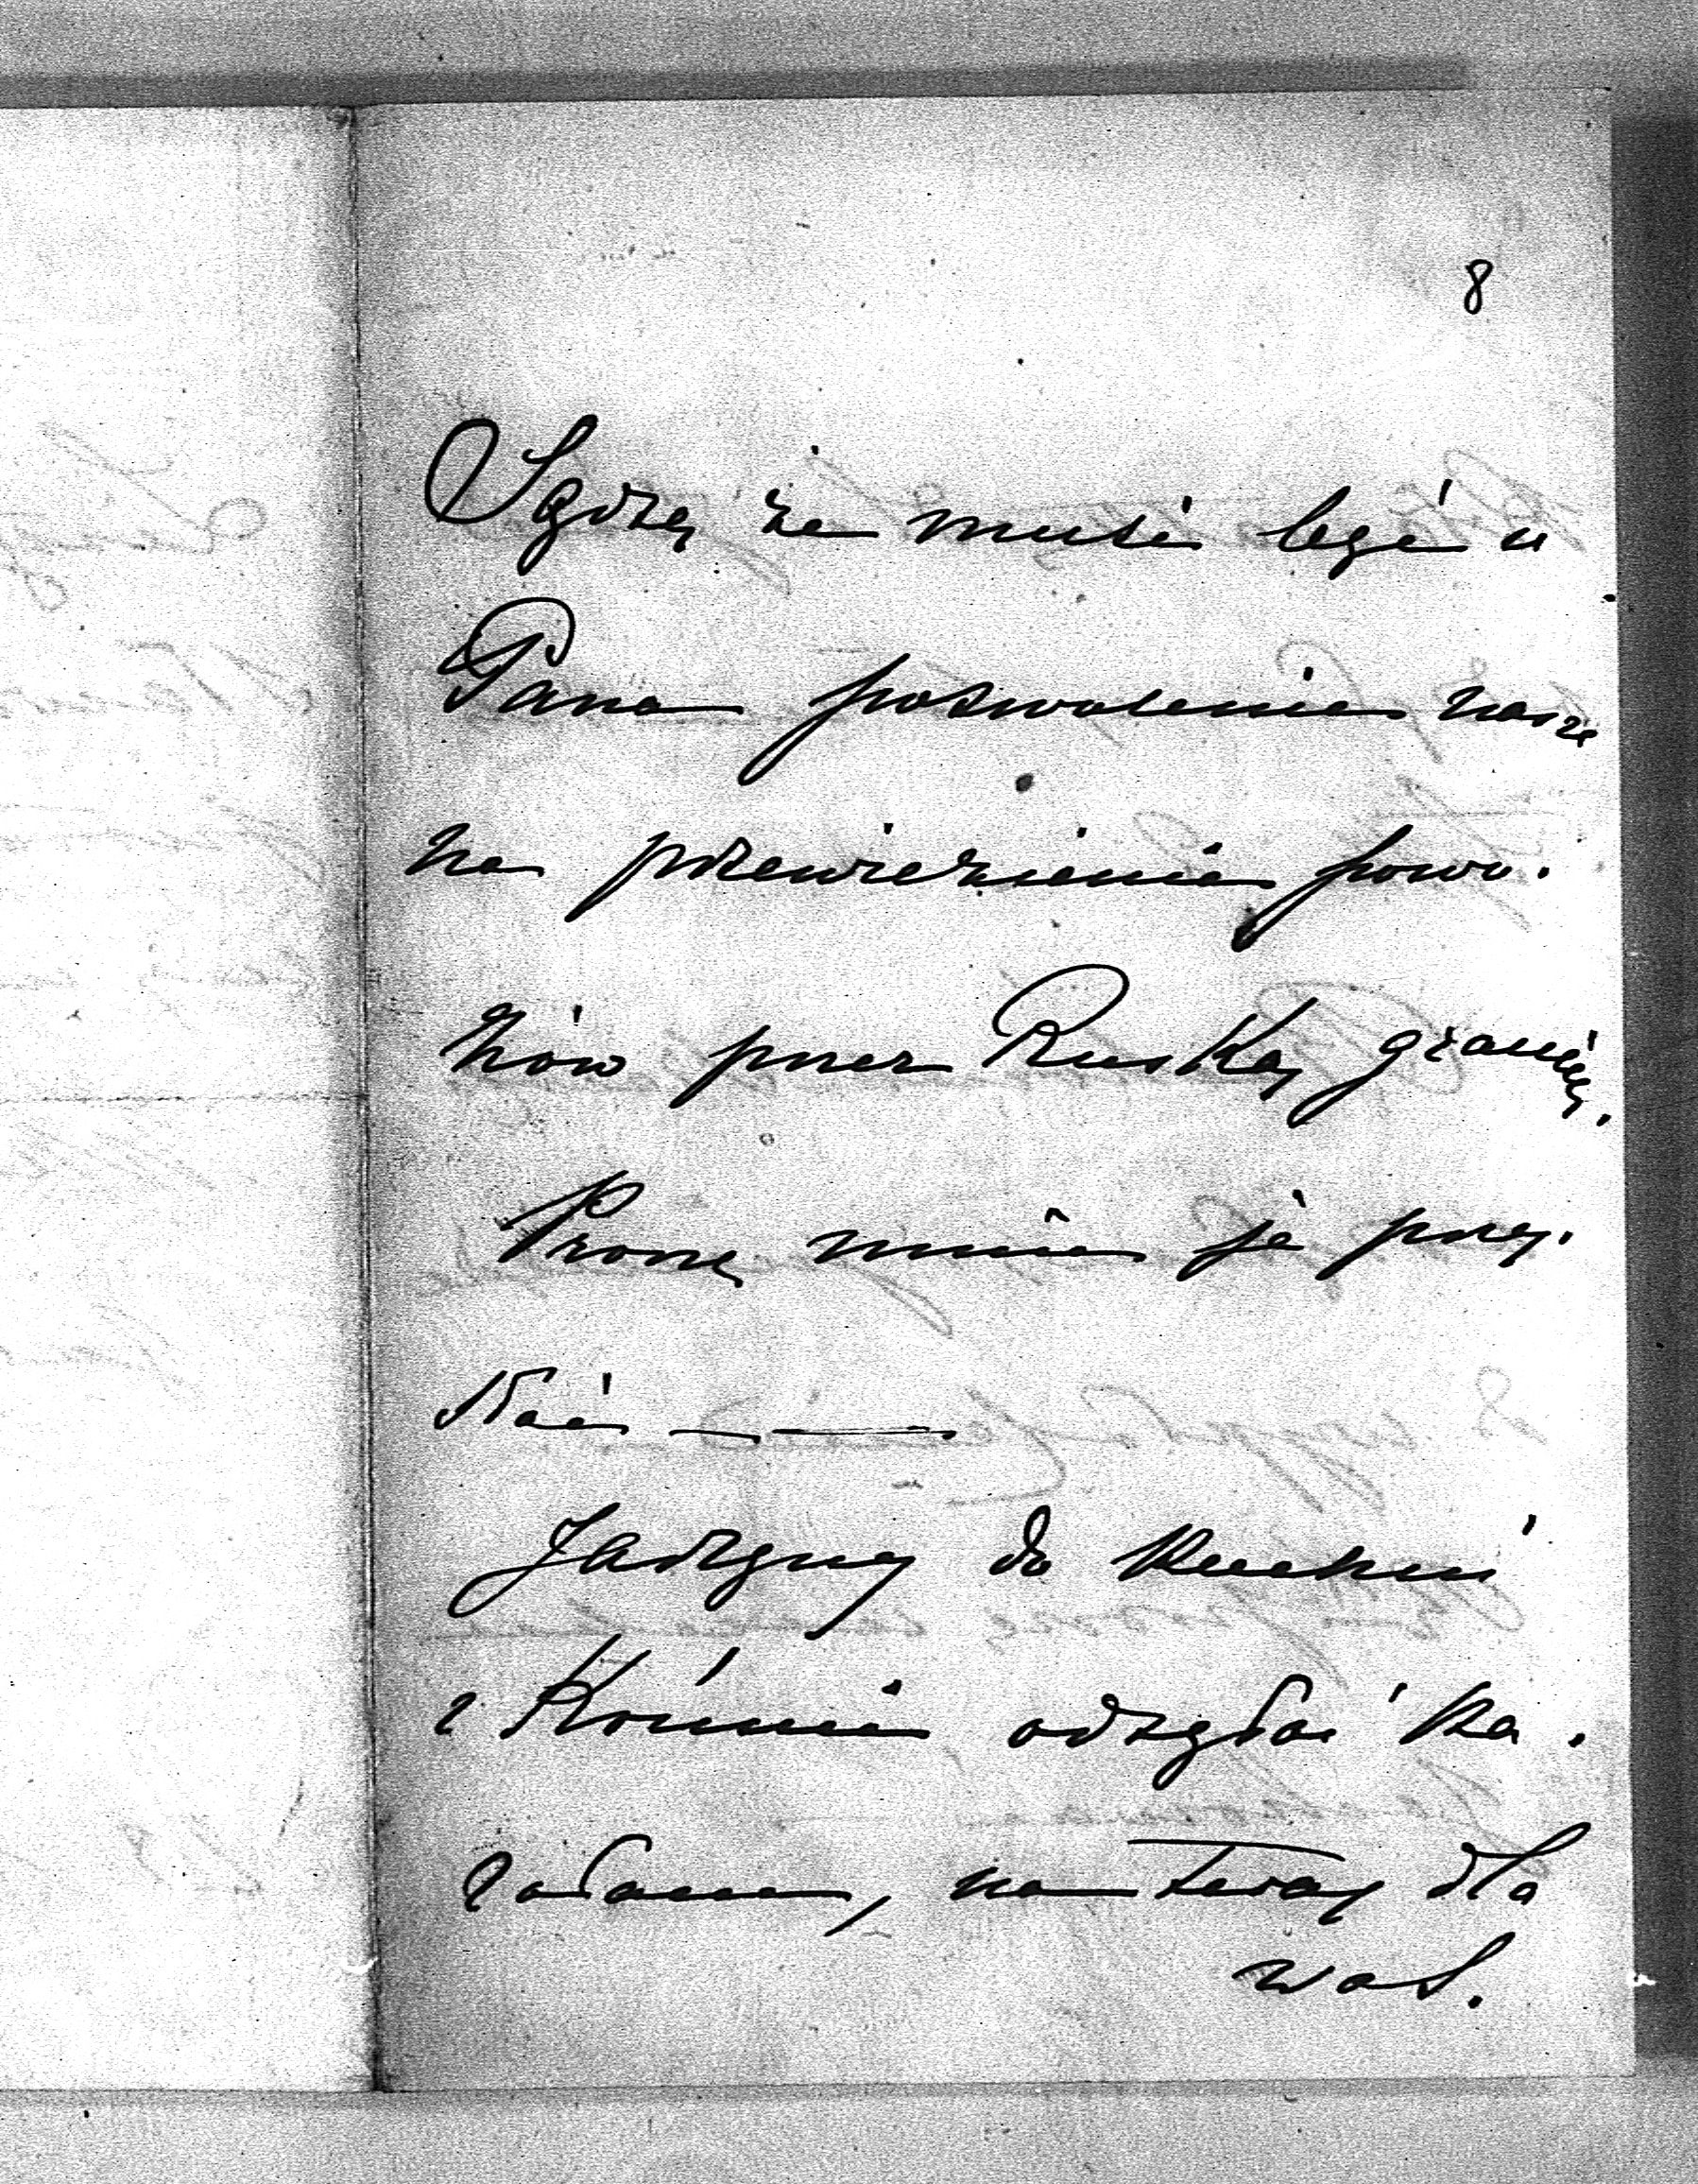 8
Sądzę że musi leżéć u
Pana pozwolenie nasze
na przewiezienie powo.
zów przez Ruską granicę.
Proszę mnie je przy.
słać
Jadzmy do Kuchni
i Koźmin odsyłać ka.
załam, na teraz dla
was.